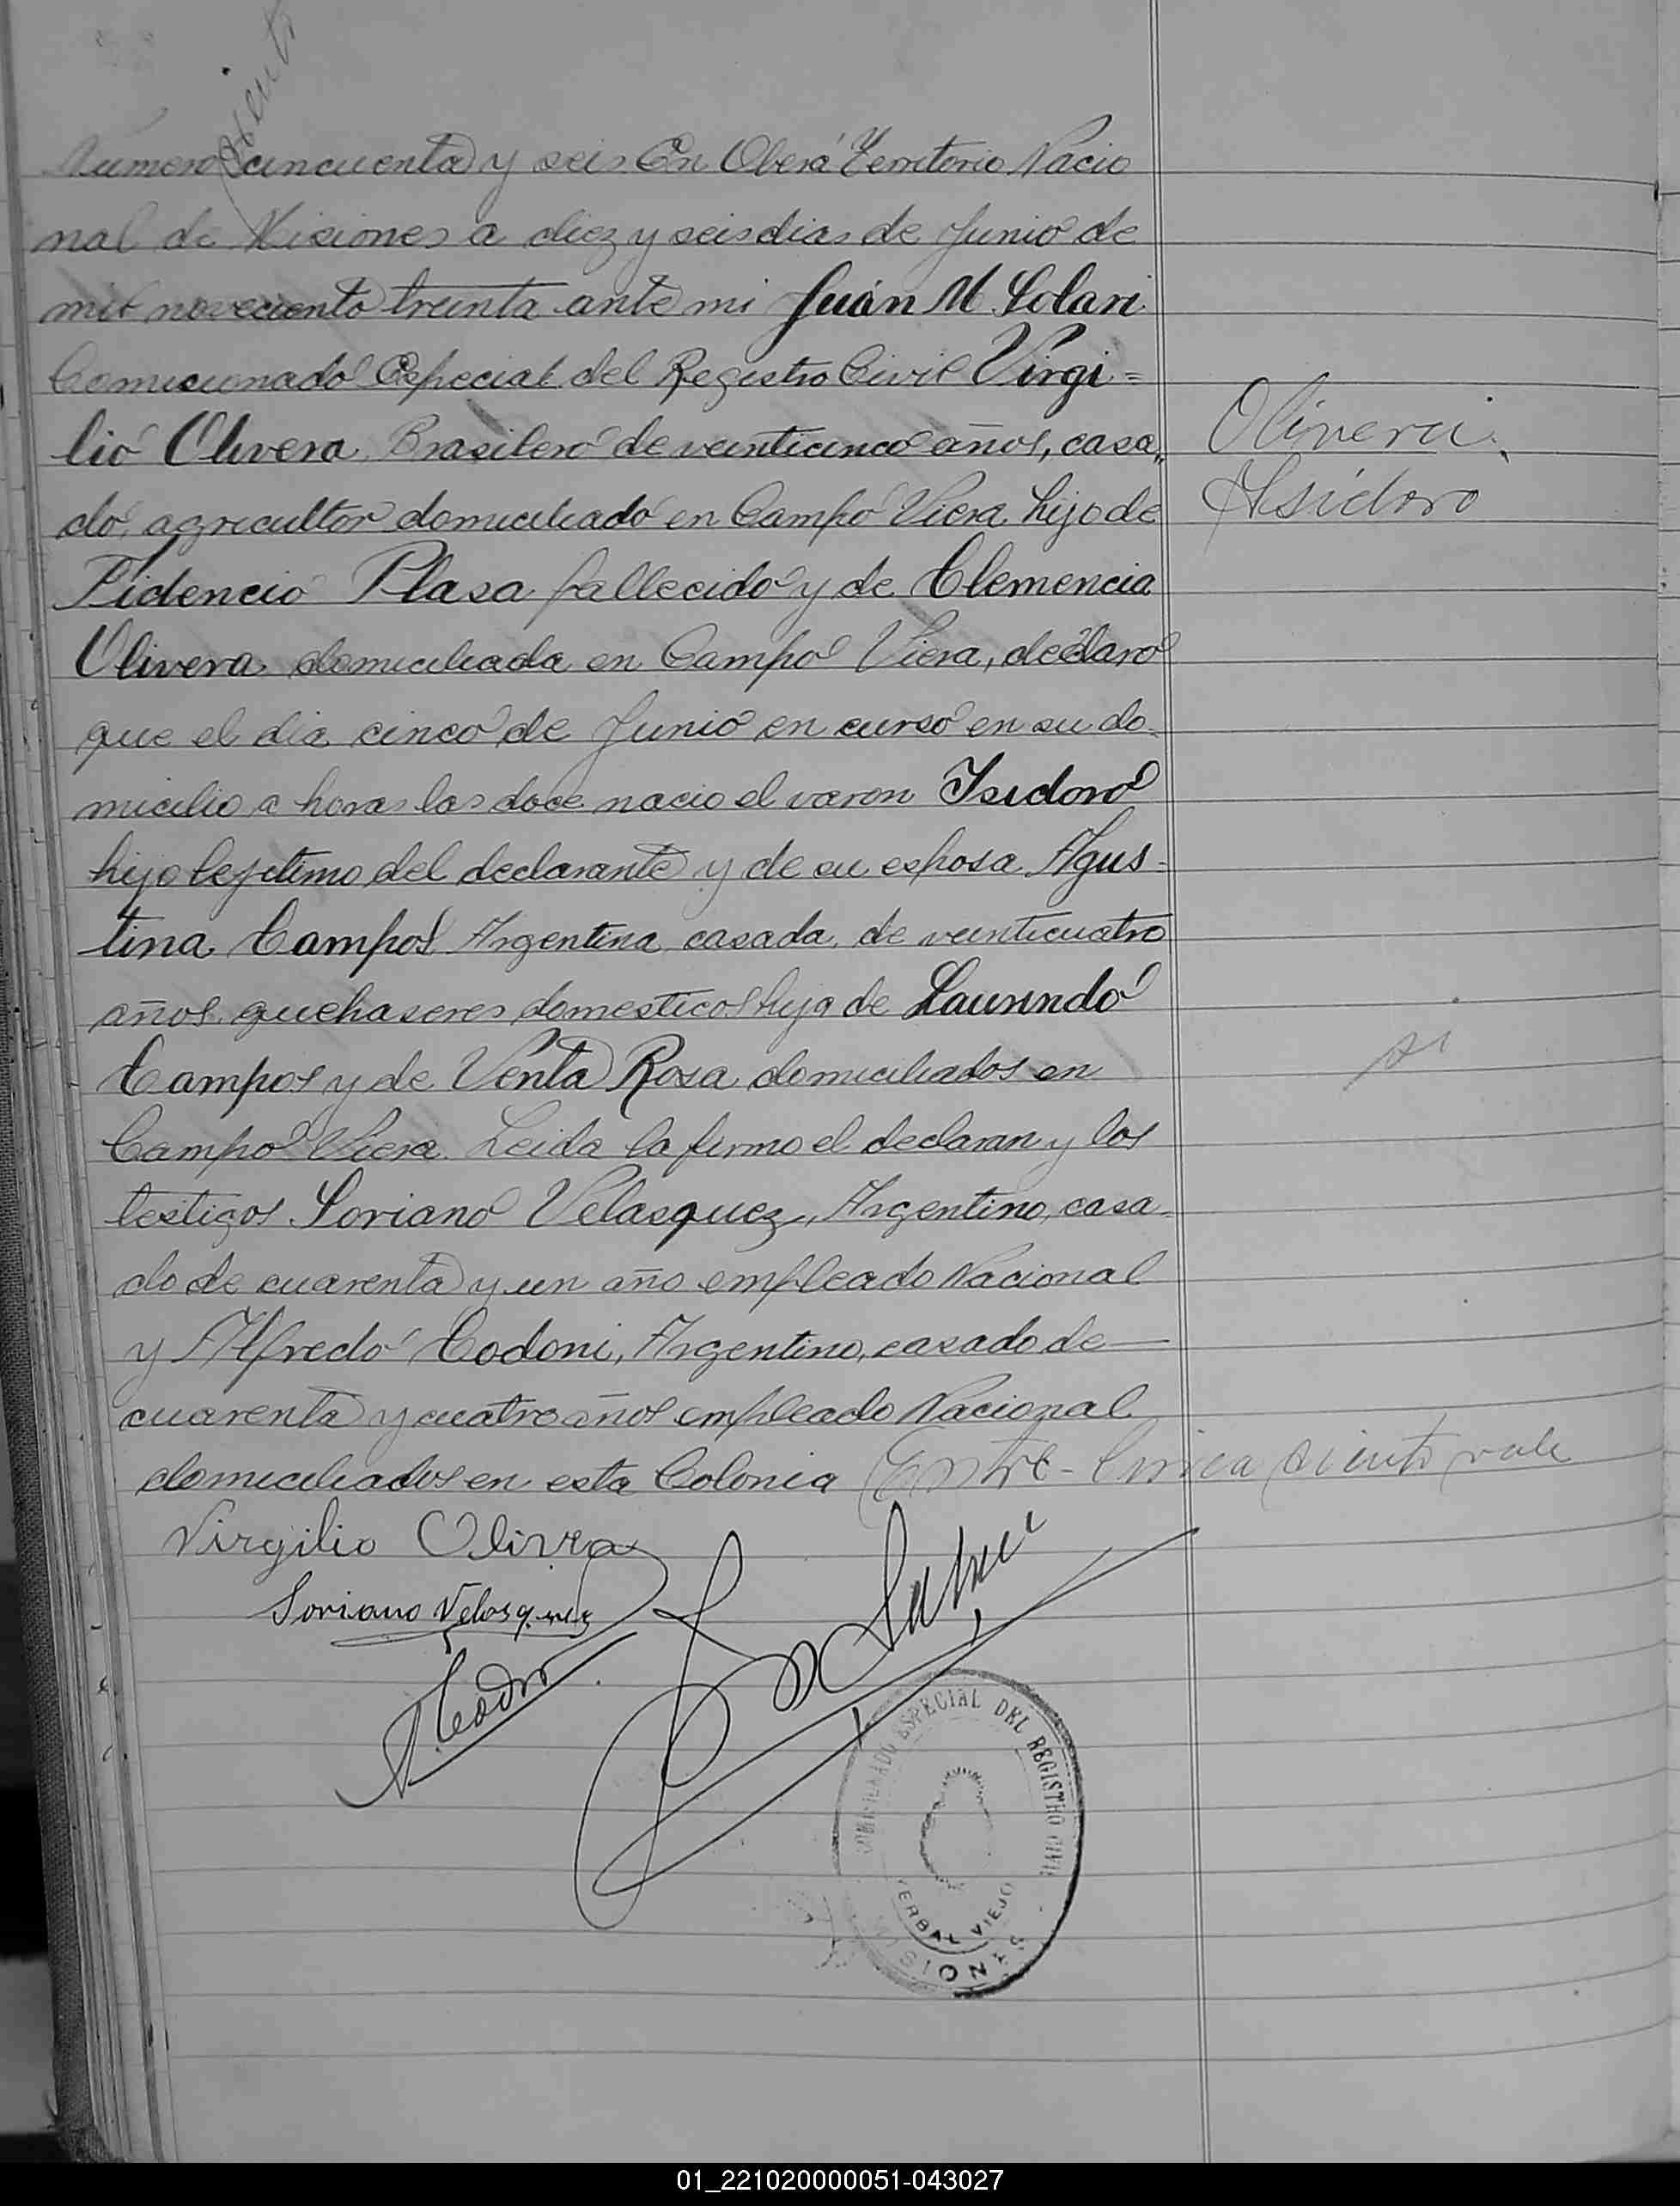 ciento
Numero cincuenta y seis En Oberá Territorio Nacio
nal de Misiones a diez y seis dias de Junio de
mil noveciento treinta ante mi Juan M. Solari
Comicionado Especial del Registro Civil Virgi=
lio Olivera, Brasilero de veinticinco años, casa„
do, agricultor domiciliado en Campo Viera hijo de
Fidencio Plasa fallecido y de Clemencia
Olivera domiciliada en Campo Viera, declaro
que el dia cinco de Junio en curso en su do-
micilio a horas las doce nacio el varon Isidoro
hijo lejitimo del declarante y de su esposa Agus=
tina Campos Argentina casada, de veinticuatro
años quehaseres domesticos hija de Laurindo
Campos y de Venta Rosa domiciliados en
Campo Viera. Leida la firmo el declaran y los
testigos Soriano Velasquez, Argentino, casa-
do de cuarenta y un año empleado Nacional
y Alfredo Codoni, Argentino, casado de—
cuarenta y cuatro años empleado Nacional
domiciliados en esta Colonia Entre-linea ciento vale
Olivera,
Isidoro
Virgilio Olivra
Soriano Velasquez
COMISIONADO ESPECIAL DEL REGISTRO CIVIL
YERBAL VIEJO
MISIONES
01_221020000051-043027